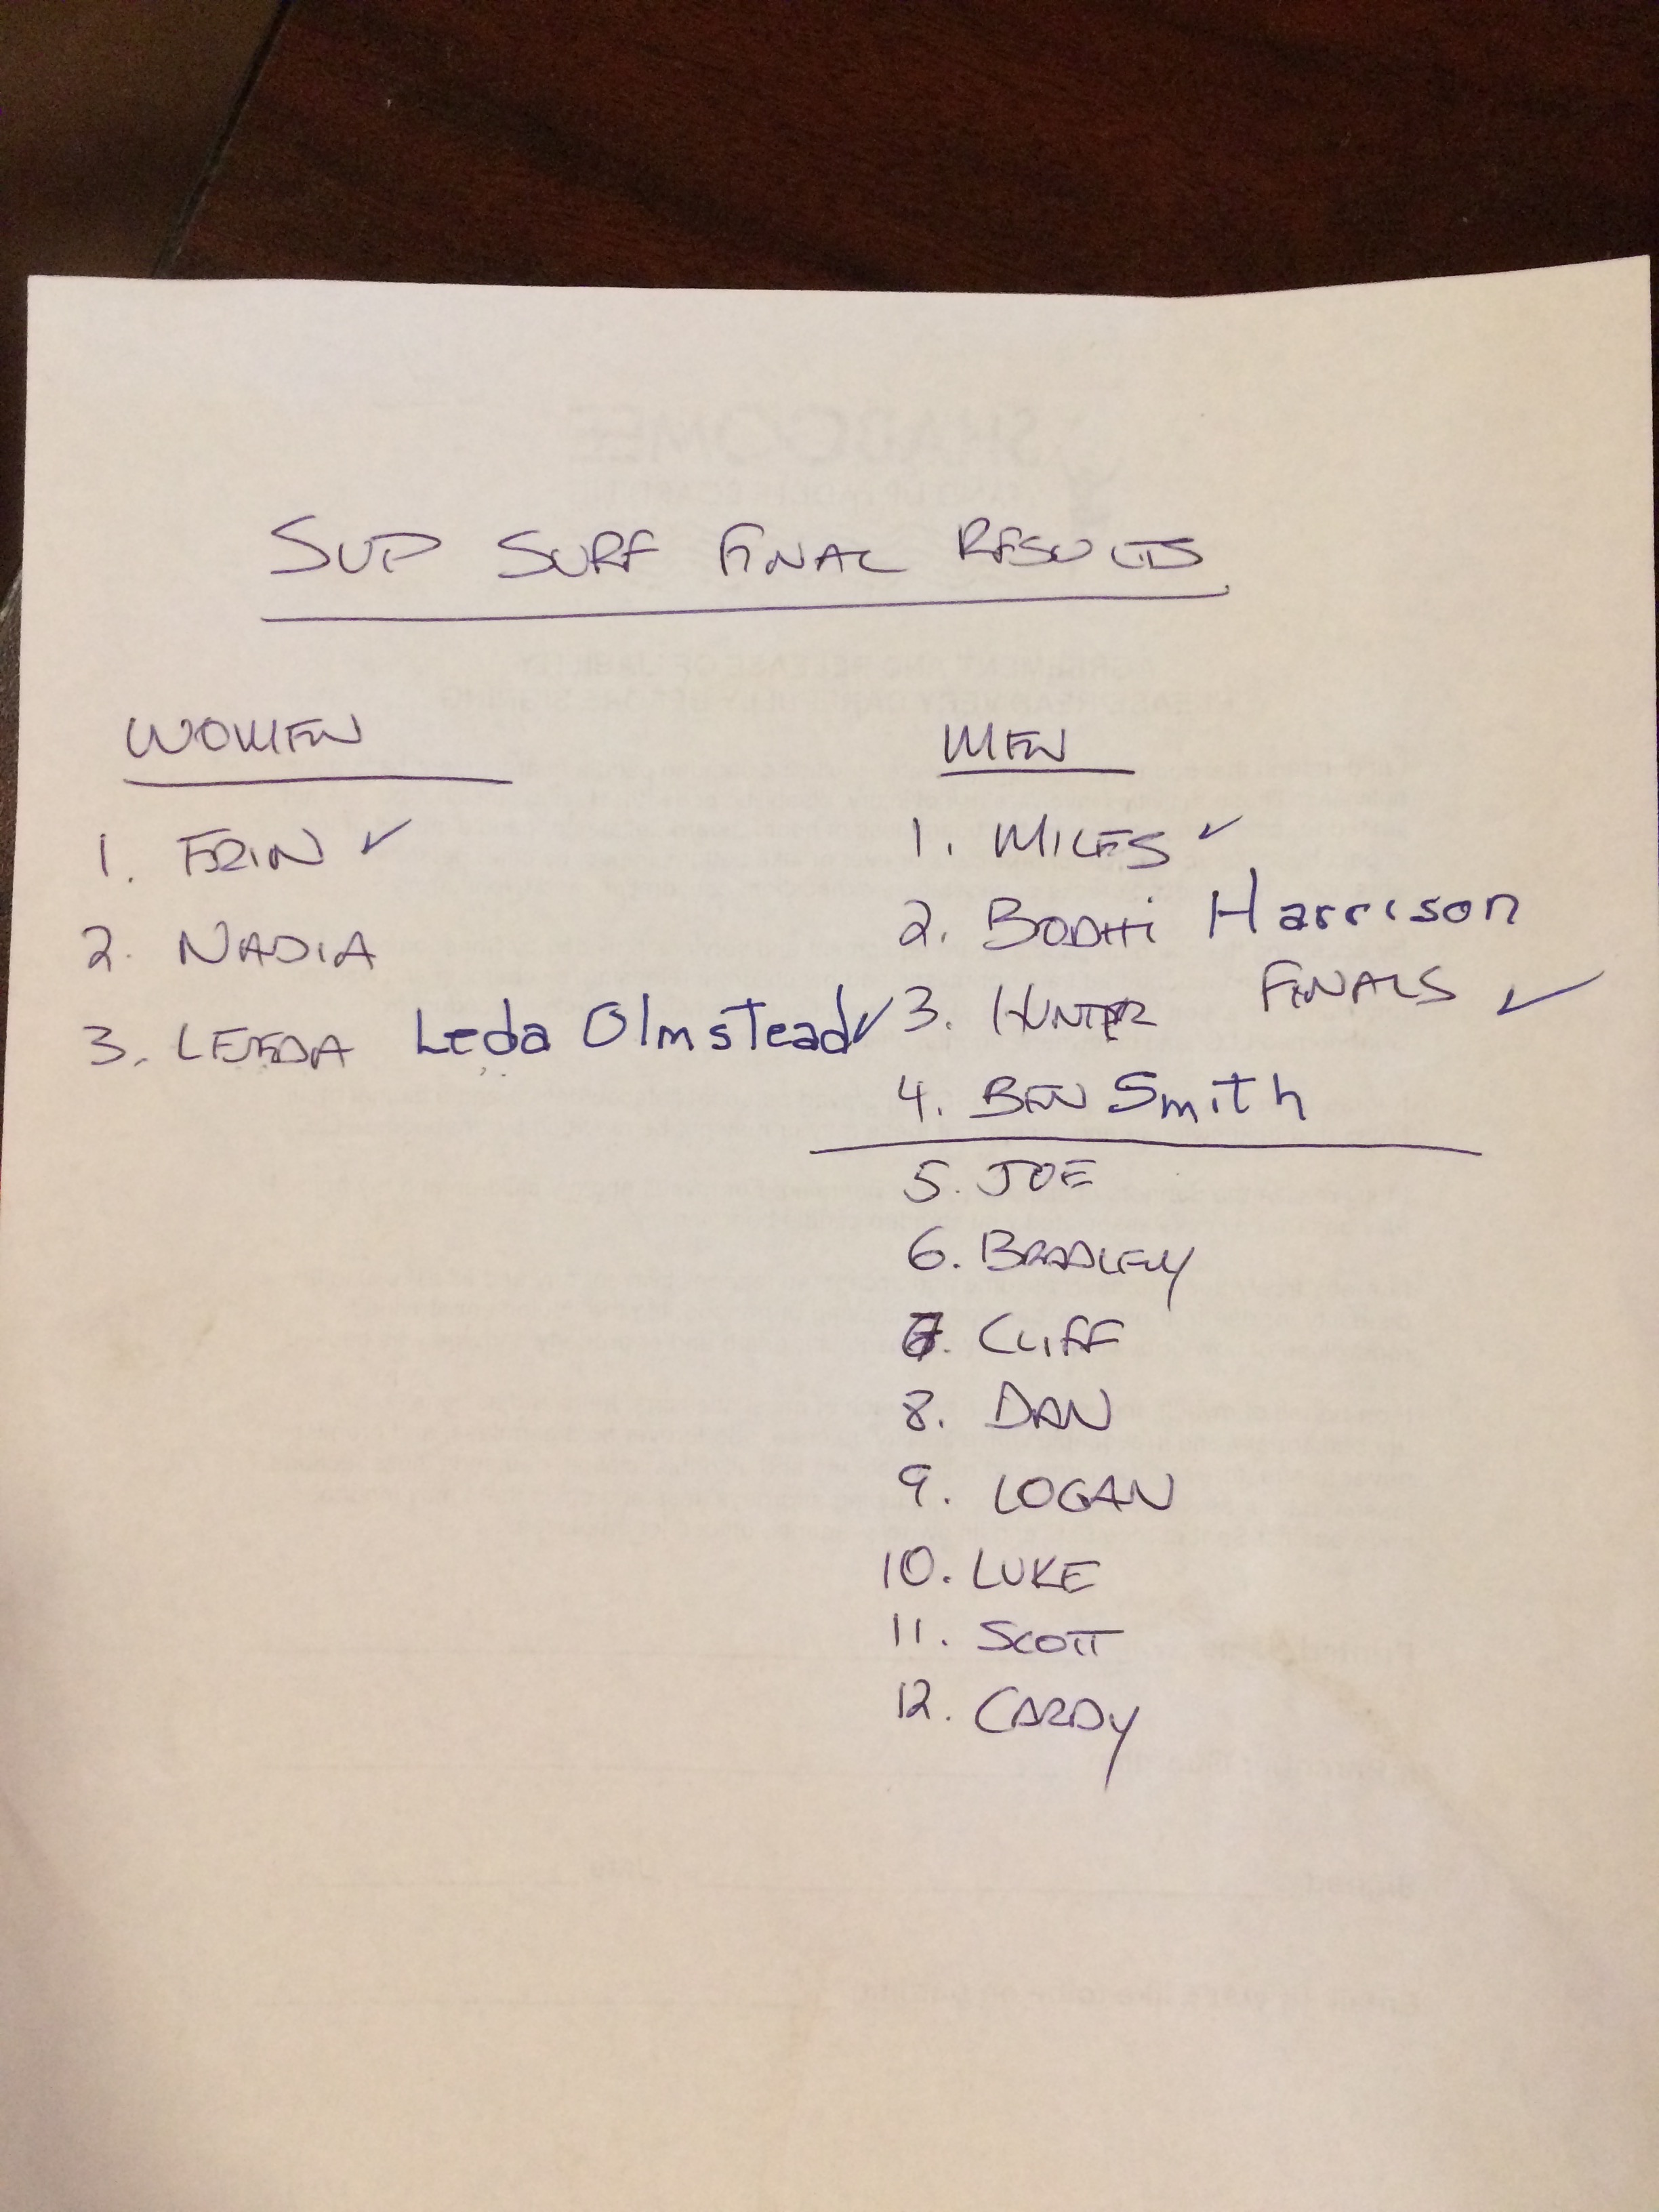 SUP SURF FINAL RESULTS
WOMEN
1. ERIN ✓
2. NADIA
3. LEEDA Leda Olmstead ✓
MEN
1. MILES ✓
2. BODHI Harrison
3. HUNTER FINALS ✓
4. BEN Smith
5. JOE
6. BRADLEY
7. CLIFF
8. DAN
9. LOGAN
10. LUKE
11. SCOTT
12. CARDY